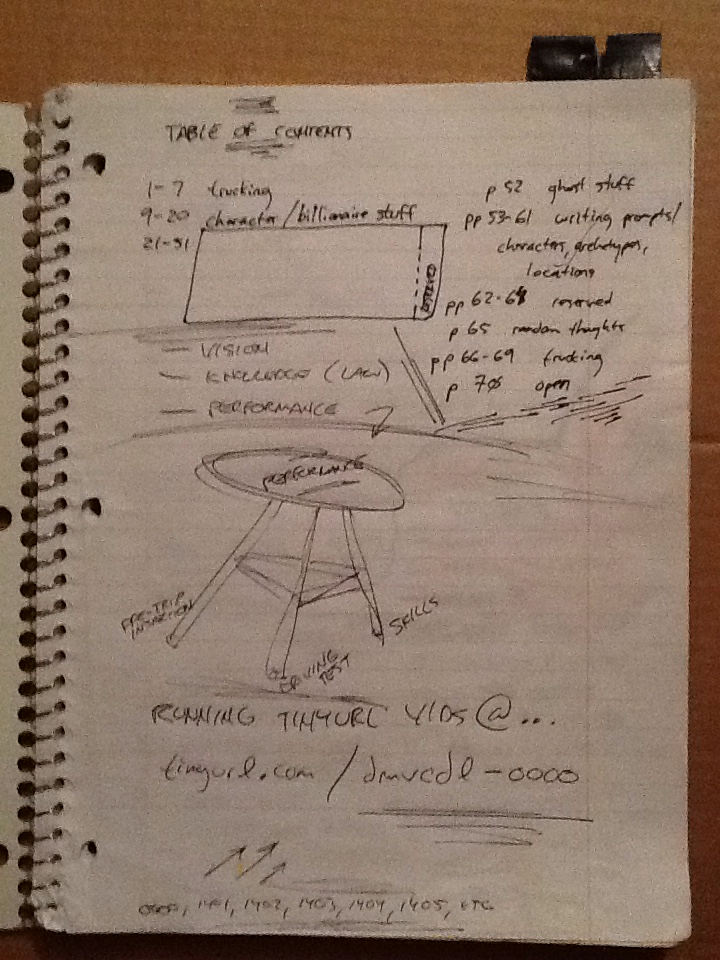 TABLE OF CONTENTS
1-7 trucking
9-20 character/billionaire stuff
21-51
RESERVED
p 52 ghost stuff
pp 53-61 writing prompts/
characters, archetypes,
locations
pp 62-64 reserved
p 65 random thoughts
pp 66-69 trucking
p 70 open
— VISION
— KNOWLEDGE (LAW)
— PERFORMANCE
PERFORMANCE
PRE-TRIP
INSPECTION
DRIVING
TEST
SKILLS
RUNNING TINYURL VIDS @...
tinyurl.com/dmvcdl-0000
0000, 1401, 1402, 1403, 1404, 1405, ETC